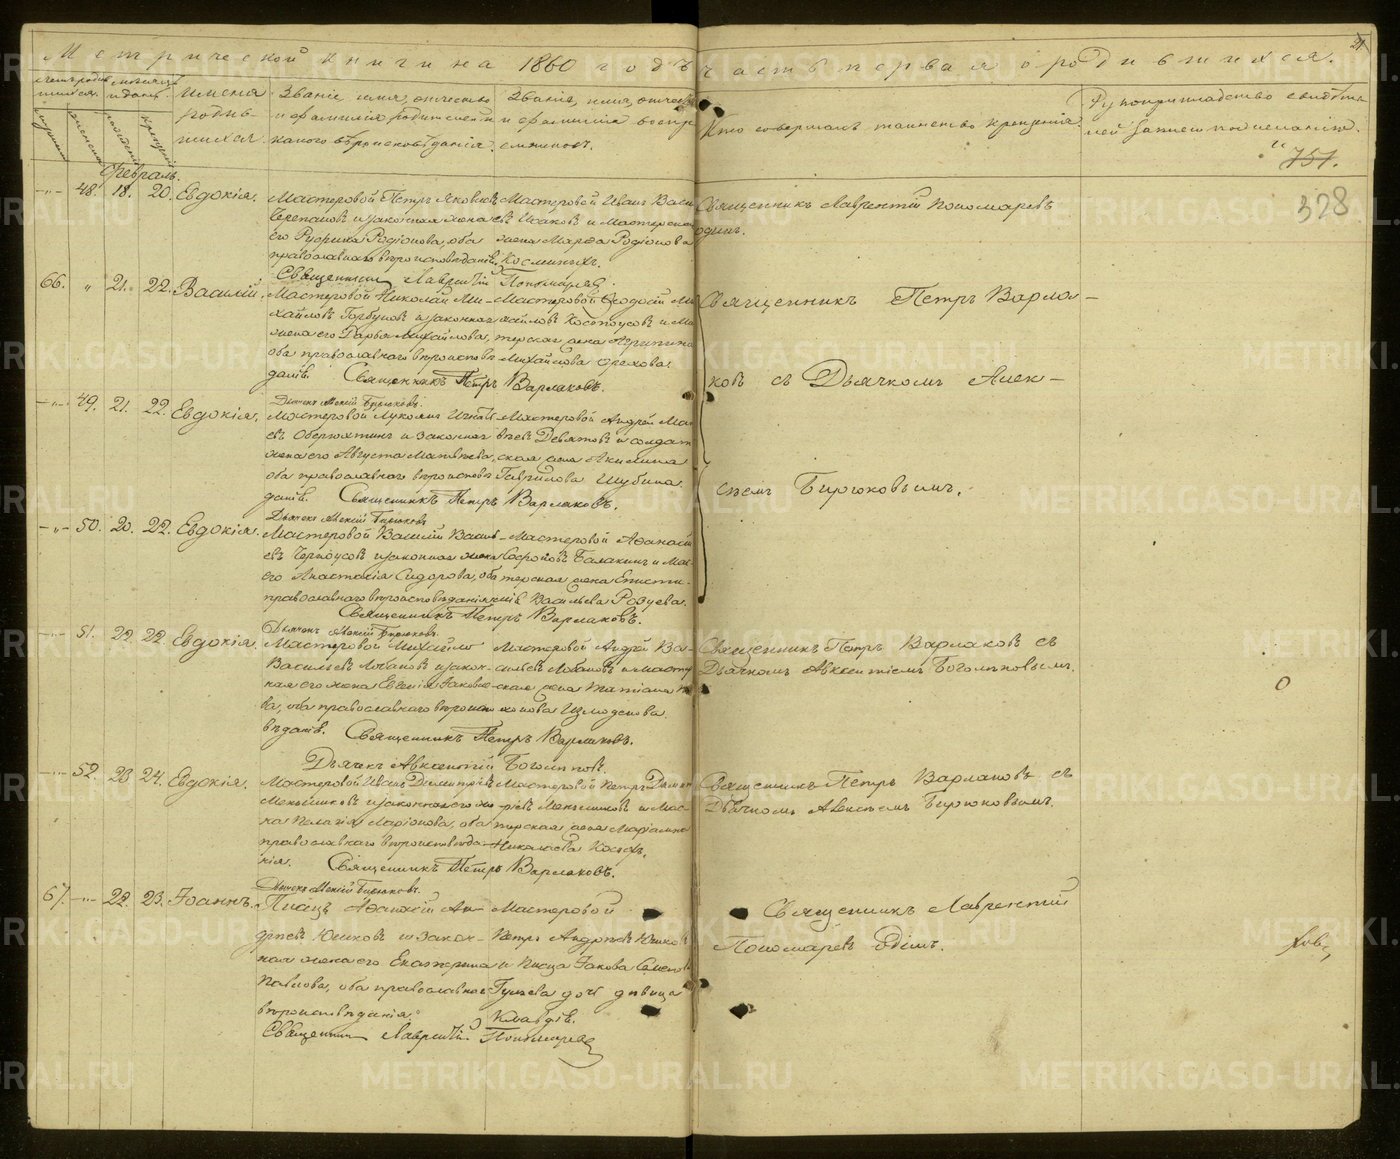 Метрической книги на 1860 годъ часть первая о родившихся.
21
Счетъ родив-
шихся.
Мѣсяцъ
и день.
рожденія
крещенія
Имена
родив-
шихся
Званіе, имя, отчество
и фамилія родителей и
какого вѣроисповѣданія.
Званіе, имя, отчест
и фамилія воспр
емниковъ.
Кто совершалъ таинство крещенія
Рукоприкладство свидѣте-
лей записи по желанію.
751.
328
Февраль.
48. 18. 20. Евдокія.
Мастеровой Петръ Яковлевъ
Черепановъ и законная жена
его Родіонова, оба
православнаго вѣроисповѣданія.
Священникъ Лаврентій Пономаревъ
Мастеровой Иванъ Васи
евъ Исаковъ и Мастерска
жена Марѳа Родіонова
Косминыхъ.
Священникъ Лаврентій Пономаревъ
одинъ.
66. " 21. 22. Василій.
Мастеровой Николай Ми-
хайловъ Горбуновъ и законная
жена его Дарья Михайлова,
оба православнаго вѣроиспов-
данія. Священникъ Петръ Варлаковъ.
Дьячекъ Алексій Бирюковъ.
Мастеровой Ѳеодосій Ми
хайловъ Косоноусовъ и Ма
терская жена Агрипина
Михайлова Орехова.
Священникъ Петръ Варла-
ковъ съ Дьячкомъ Алек-
сѣемъ Бирюковымъ.
49. 21. 22. Евдокія.
Мастеровой Игнать
евъ Оберюхтинъ и законная
жена его Августа Матвѣева,
оба православнаго вѣроиспов
данія. Священникъ Петръ Варлаковъ.
Дьячекъ Алексій Бирюковъ
Мастеровой Андрей Мат
вѣевъ Девятовъ и солдат
ская жена Акилина
Гаврилова Шубина.
50. 20. 22. Евдокія.
Мастеровой Василій Васил-
евъ Черноусовъ и законная жена
его Анастасія Сидорова, оба
православнаго вѣроисповѣданія
Священникъ Петръ Варлаковъ.
Дьячекъ Алексій Бирюковъ.
Мастеровой Аѳанасій
Софоновъ Балакинъ и Мас
терская жена Еписти-
мія Васильева
51. 22. 22. Евдокія.
Мастеровой Михайло
Васильевъ Лобановъ и закон-
ная его жена Евгенія Яковле-
ва, оба православнаго вѣроиспо
вѣданія. Священникъ Петръ Варлаковъ.
Дьячекъ Авксентій Боголѣповъ.
Мастеровой Андрей Ва-
сильевъ Лобановъ и Масте
ская жена Татіана
Измоденова.
Священникъ Петръ Варлаковъ съ
Дьячкомъ Авксентіемъ Боголѣповымъ.
52. 23 24. Евдокія.
Мастеровой Иванъ Димитріевъ
Меньшиковъ и законная его же
на Пелагія Ларіонова, оба
православнаго вѣроисповѣда-
нія. Священникъ Петръ Варлаковъ.
Дьячекъ Алексій Бирюковъ.
Мастеровой Петръ Димит
ріевъ Меньшиковъ и Мас-
терская жена Маріамна
Николаева
Священникъ Петръ Варлаковъ съ
Дьячкомъ Алексѣемъ Бирюковымъ.
67. 22. 23. Іоаннъ.
Писецъ Аѳанасій Ан-
дреевъ Юшковъ и закон-
ная жена его Екатерина
Павлова, оба православнаго
вѣроисповѣданія.
Священникъ Лаврентій Пономаревъ
Мастеровой
Петръ Андреевъ Юшков
и Писца Іакова Семенов
Гуляева дочь дѣвица
Клавдія.
Священникъ Лаврентій
Пономаревъ Одинъ.
METRIKI.GASO-URAL.RU